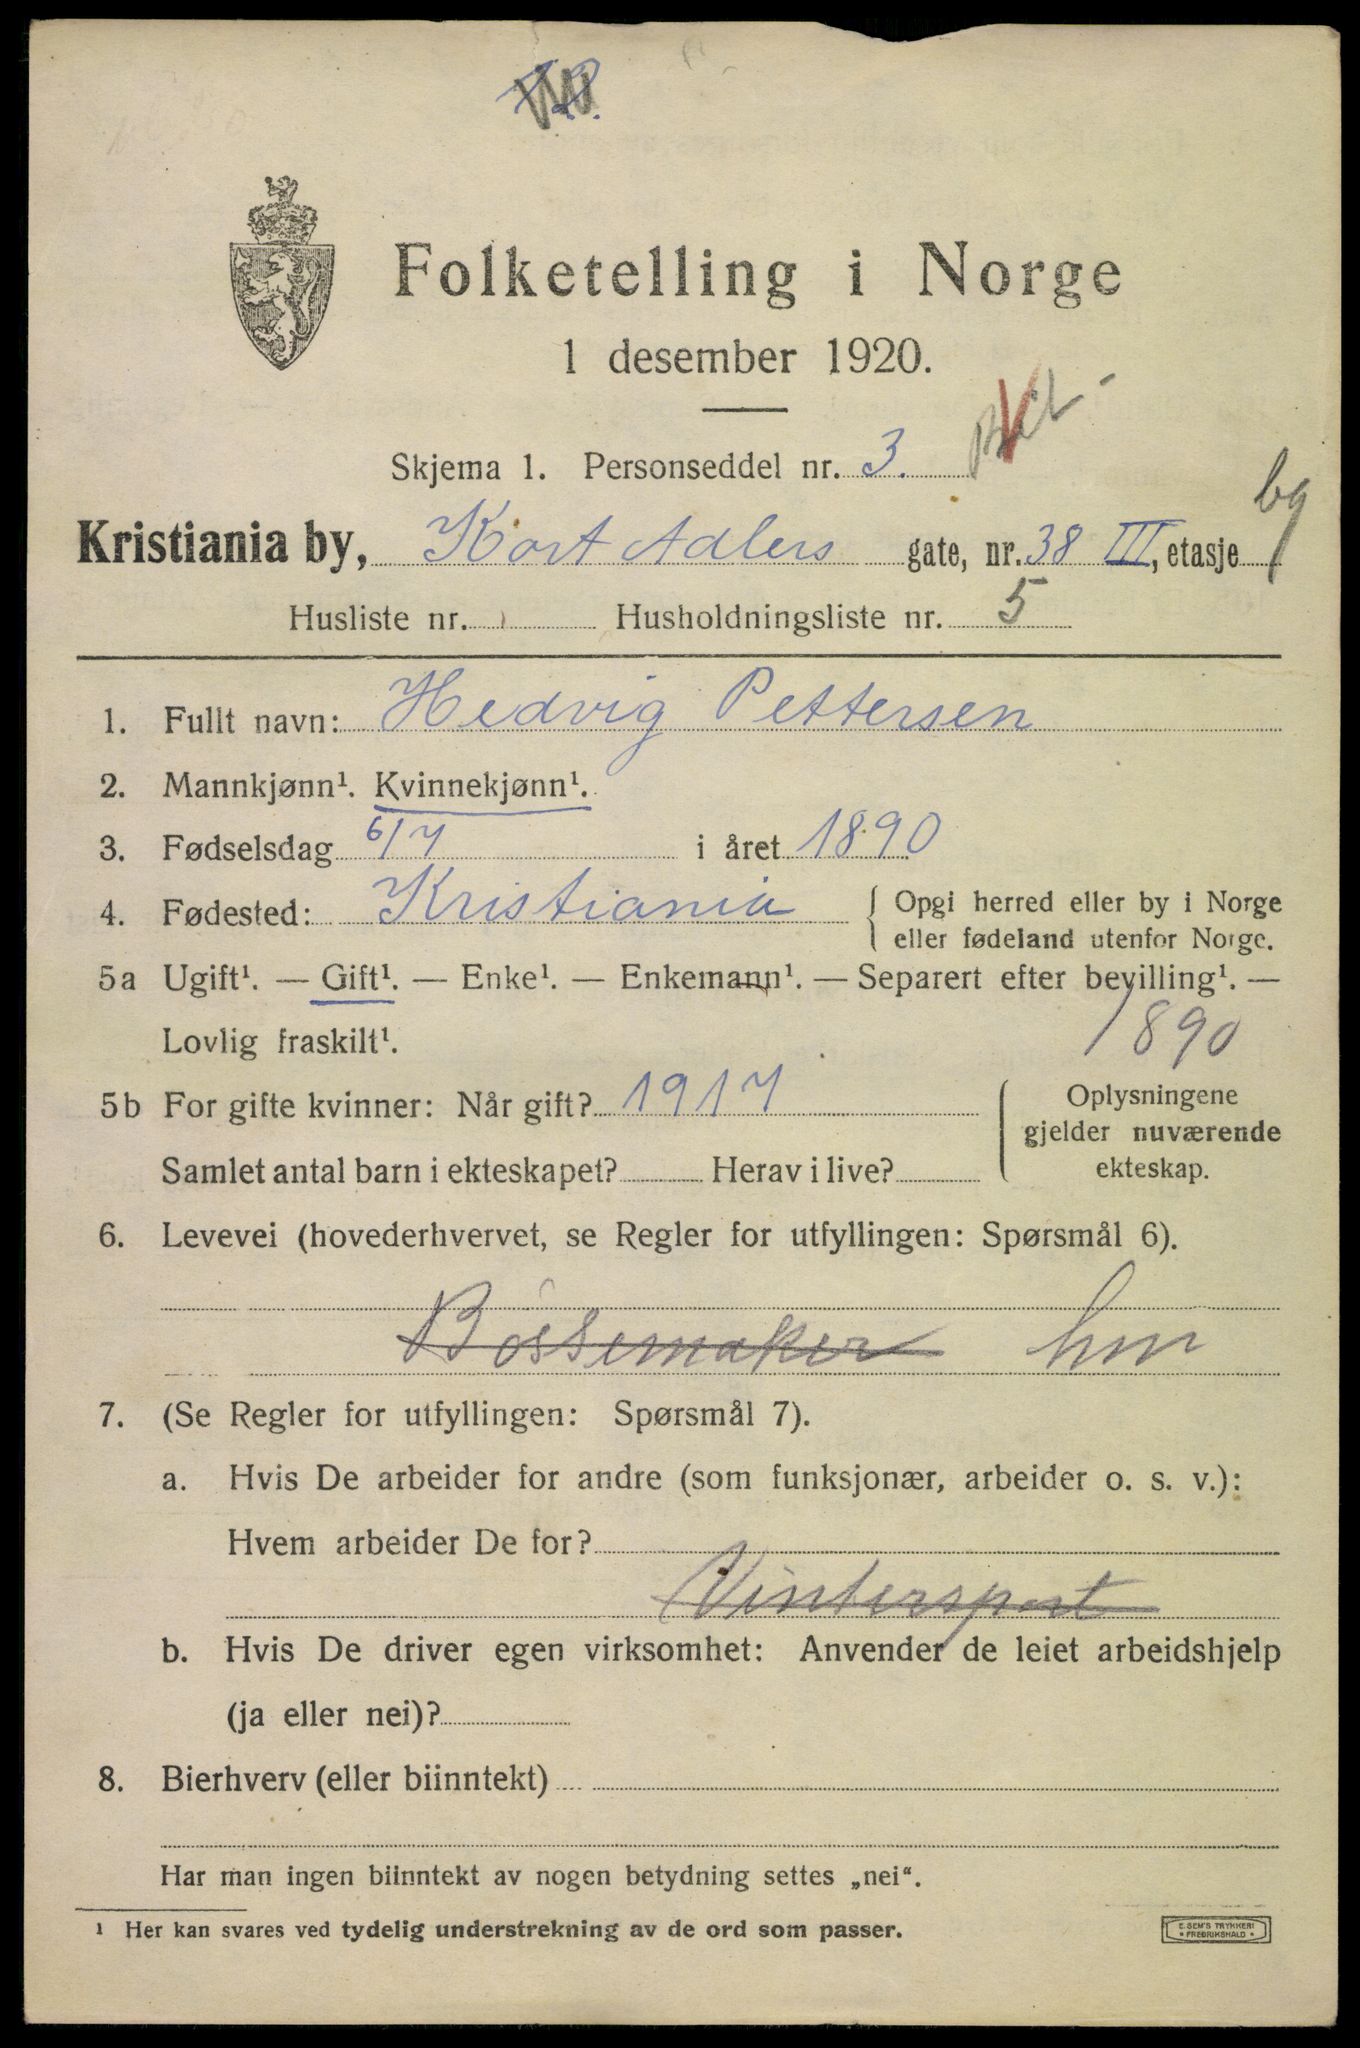 Folketelling i Norge
1 desember 1920.
Skjema 1. Personseddel nr. 3.
Kristiania by, Kort Adlers gate, nr. 38 III, etasje bg
Husliste nr. Husholdningsliste nr. 5
1. Fullt navn: Hedvig Pettersen
2. Mannkjønn¹. Kvinnekjønn¹.
3. Fødselsdag 6/7 i året 1890
4. Fødested: Kristiania { Opgi herred eller by i Norge
eller fødeland utenfor Norge.
5a Ugift¹. — Gift¹. — Enke¹. — Enkemann¹. — Separert efter bevilling¹. —
Lovlig fraskilt¹. 1890
5b For gifte kvinner: Når gift? 1917
Samlet antal barn i ekteskapet? Herav i live?
Oplysningene
gjelder nuværende
ekteskap.
6. Levevei (hovederhvervet, se Regler for utfyllingen: Spørsmål 6).
Bössemaker hm
7. (Se Regler for utfyllingen: Spørsmål 7).
a. Hvis De arbeider for andre (som funksjonær, arbeider o. s. v.):
Hvem arbeider De for?
Vintersport
b. Hvis De driver egen virksomhet: Anvender de leiet arbeidshjelp
(ja eller nei)?
8. Bierhverv (eller biinntekt)
Har man ingen biinntekt av nogen betydning settes „nei“.
¹ Her kan svares ved tydelig understrekning av de ord som passer.
E. SEM'S TRYKKERI
FREDRIKSHALD